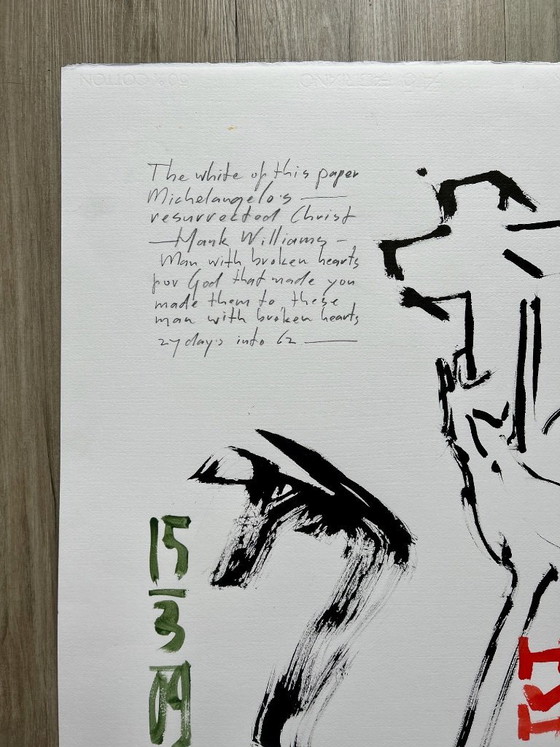 The white of this paper
Michelangelo's —
resurrected Christ
— Mark Williams —
Man with broken hearts
for God that made you
made them to these
man with broken hearts
27 days into 62 —
15
3
09